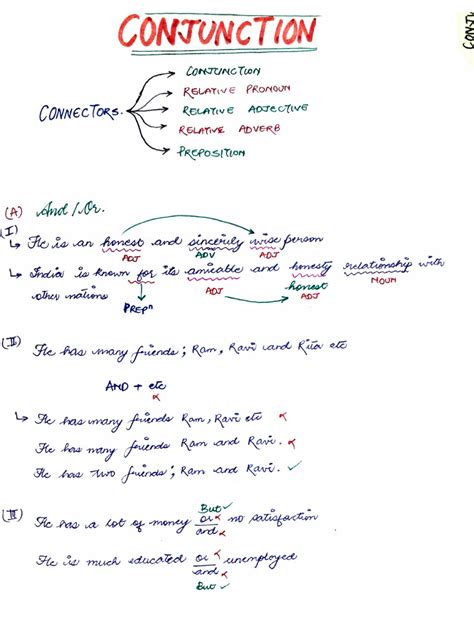 CONJUNCTION
CONJ
CONJUNCTION
RELATIVE PRONOUN
CONNECTORS.
RELATIVE ADJECTIVE
RELATIVE ADVERB
PREPOSITION
(A) And / Or.
(I)
↳ He is an honest and sincerily wise person
ADJ ADV ADJ
↳ India is known for its amicable and honesty relationship with
honest
ADJ ADJ NOUN
other nations
PREPⁿ
(II)
He has many friends; Ram, Ravi and Rita etc
AND + etc
×
↳ He has many friends Ram, Ravi etc ×
He has many friends Ram and Ravi. ×
He has two friends; Ram and Ravi. ✓
But ✓
(III) He has a lot of money or × no satisfaction
and ×
He is much educated or × unemployed
and ×
But ✓